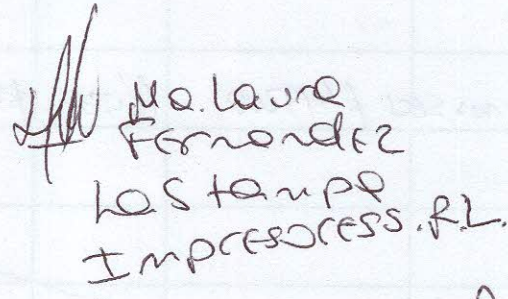 Ma. Laura
Fernandez
La Stampa
Impresores S.R.L.